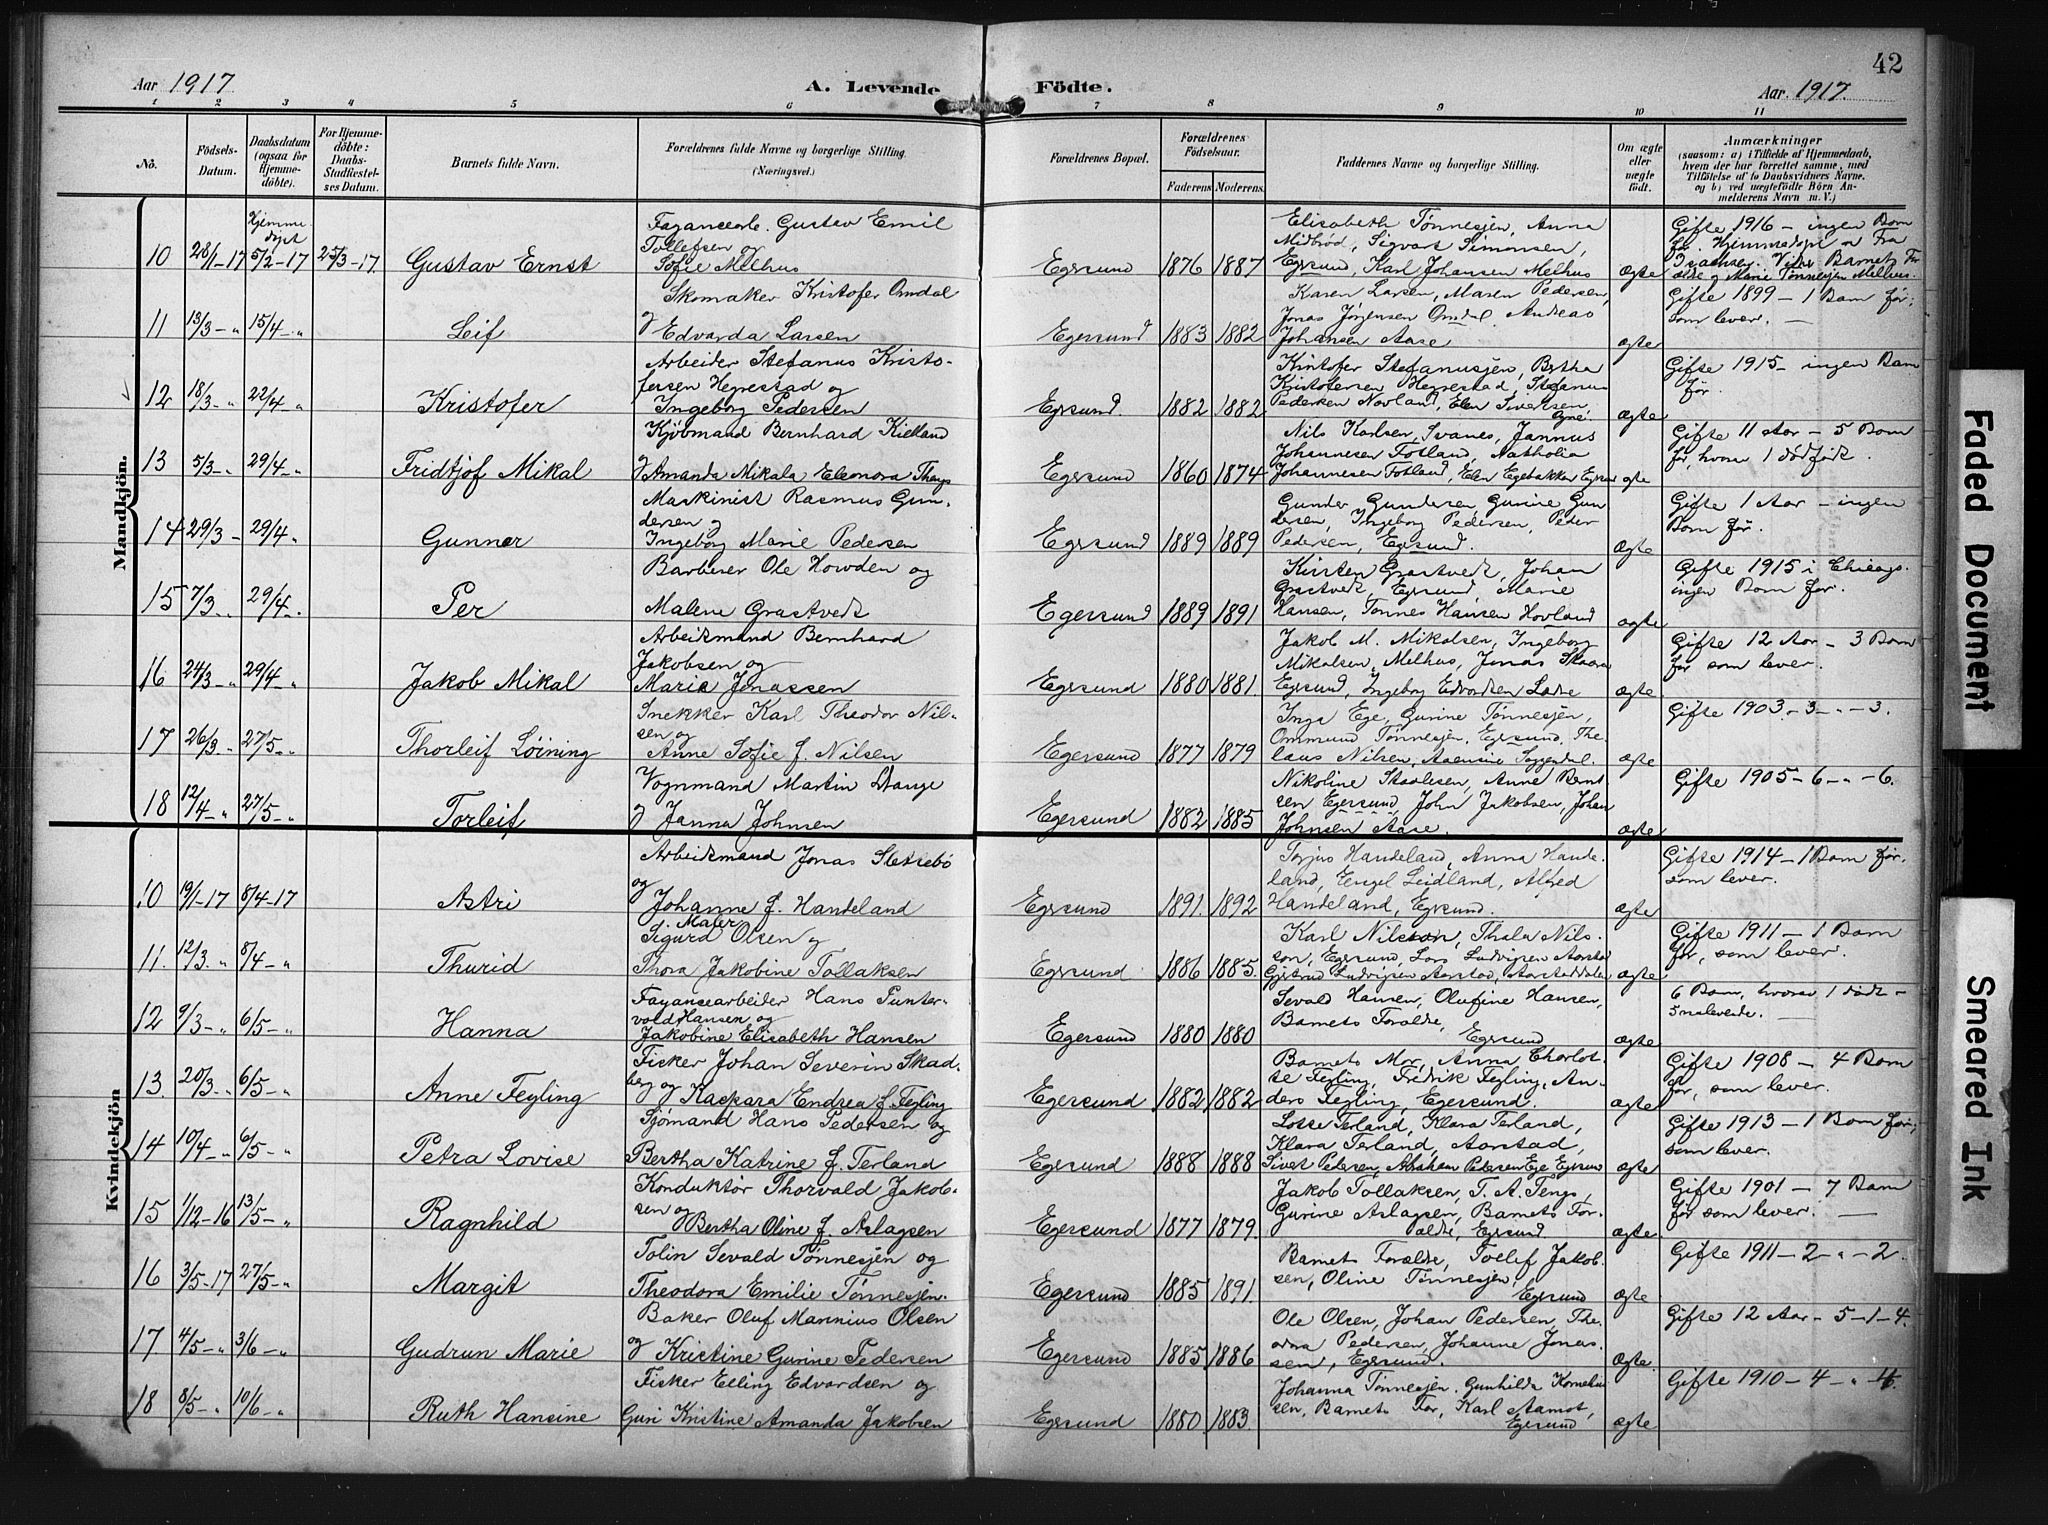 42
Aar 1917
A. Levende Födte.
Aar 1917.
1 2 3 4 5 6 7 8 9 10 11
Nö.
Födsels-Datum.
Daabsdatum (ogsaa for Hjemmedöbte).
For Hjemmedöbte: Daabs-Stadfæstelses Datum.
Barnets fulde Navn.
Forældrenes fulde Navne og borgerlige Stilling.
(Næringsvei.)
Forældrenes Bopæl.
Forældrenes Födselsaar.
Faderens. Moderens.
Faddernes Navne og borgerlige Stilling.
Om ægte eller uægte födt.
Anmærkninger
(saasom: a) i Tilfælde af Hjemmedaab, hvem der har forrettet samme, med Tilföielse af to Daabsvidners Navne, og b) ved uægtefödte Börn Anmelderens Navn m. V.)
Mandkjön.
Hjemme
döpt
10 28/1-17 5/2-17 25/3-17. Gustav Ernst
Fayancearb. Gustav Emil
Tollefsen og
Sofie Melhus
Egersund 1876 1887
Elisabeth Tønnesjen, Anna
Midbrød, Sigvart Simonsen,
Egrsund, Karl Johansen Melhus
ægte
Gifte 1916 - ingen Barn
før. Hjemmedøpt av Fra
Isachsen. Vidner Barnets For
ældre og Marie Tønnesjen Melhus.
11 13/3 - " 15/4 - " Leif
Skomaker Kristofer Omdal
og Edvarda Larsen
Egersund 1883 1882
Karen Larsen, Maren Pedersen,
Jonas Jørgensen Omdal, Andreas
Johansen Aase
ægte
Gifte 1899 - 1 Barn før,
som lever.
12 18/3 - " 22/4 - " Kristofer
Arbeider Stefanus Kristo-
fersen Hegrestad og
Ingeborg Pedersen
Egrsund. 1882 1882
Kristofer Stefanusjen, Bertha
Kristofersen Hegrestad, Stefanus
Pedersen Novland, Elen Sivertsen,
Ogne.
ægte
Gifte 1915 - ingen Barn
før.
13 5/3 - " 29/4 - " Fridtjof Mikal
Kjøbmand Bernhard Kielland
og Amanda Mikala Eleonora Thengs
Egersund 1860 1874
Nils Karlsen, Svanes, Jannus
Johannesen Fotland, Nathalia
Johannesen Fotland, Elen Egebakken Egrsund
ægte
Gifte 11 Aar - 5 Barn
før, hvorav 1 dødfødt.
14 29/3 - 29/4 " Gunnar
Maskinist Rasmus Gun-
dersen og
Ingeborg Marie Pedersen
Egrsund 1889 1889
Gunder Gundersen, Gurine Gun
dersen, Ingeborg Pedersen, Peder
Pedersen, Egrsund.
ægte
Gifte 1 Aar - ingen
Barn før.
15 7/3 - " 29/4 - " Per
Barberer Ole Howden og
Malene Grastvedt
Egersund 1889 1891
Kirsten Grastvedt, Johan
Grastvedt, Egrsund, Marie
Hansen, Tønnes Hansen Hovland
ægte
Gifte 1915 i Chicago.
ingen Barn før.
16 24/3 - " 29/4 - " Jakob Mikal
Arbeidsmand Bernhard
Jakobsen og
Marie Jonassen
Egrsund 1880 1881
Jakob M. Mikalsen, Ingeborg
Mikalsen, Melhus, Jonas Skaara
Egrsund, Ingeborg Edvardsen Ladse
ægte
Gifte 12 Aar - 3 Barn
før som lever.
17 26/3 " 27/5 - " Thorleif Löining
Snekker Karl Theodor Nil-
sen og
Anne Sofie f. Nilsen
Egersund 1877 1879
Inga Ege, Gurine Tønnesjen,
Ommund Tønnesjen, Egrsund, The-
laus Nilsen, Aaensire Soggendal.
ægte
Gifte 1903 - 3 - " - 3.
18 12/4 - " 27/5 - " Torleif
Vognmand Martin Stange
og Janna Johnsen
Egersund 1882 1885
Nikoline Staalesen, Anne Bernt
sen Egersund, John Jakobsen, Johan
Johnsen Aase.
ægte
Gifte 1905 - 6 - " - 6.
Kvindekjön
10 19/1-17 8/4-17 Astri
Arbeidsmand Jonas Sletsebö
og
Johanne f. Handeland
Egrsund 1891. 1892
Torjus Handeland, Anna Hande-
land, Engel Leidland, Alfred
Handeland, Egrsund.
ægte
Gifte 1914 - 1 Barn før.
som lever.
11. 12/3. " 8/4 - " Thurid
Maler
Sigurd Olsen og
Thora Jakobine Tollaksen
Egrsund 1886 1885.
Karl Nilsson, Thala Nils-
son, Egersund, Lars Ludvigsen Aarstad
Gjertrud Ludvigsen Aarstad, Aarstaddalen
ægte
Gifte 1911 - 1 Barn
før, som lever.
12 9/3 - " 6/5 - " Hanna
Fayancearbeider Hans Punter-
vold Hansen og
Jakobine Elisabeth Hansen
Egersund 1880 1880
Sevald Hansen, Olufine Hansen,
Barnets Forældre,
Egrsund
ægte
6 Barn, hvorav 1 død -
5 nulevende.
13. 20/3 - " 6/5 - " Anne Fegling
Fisker Johan Severin Skad-
berg og Kaspara Endrea f. Fegling
Egersund 1882 1882
Barnets Mor, Anna Charlot-
te Fegling, Fredrik Fegling, An-
ders Fegling, Egersund.
ægte
Gifte 1908 - 4 Barn
før, som lever.
14 10/4 - " 6/5 - " Petra Lovise
Sjømand Hans Pedersen og
Bertha Katrine f. Terland
Egrsund 1888 1888
Lotte Terland, Klara Terland,
Klara Terland, Aarstad,
Sivert Pedersen, Abraham Pedersen Ege Egrsund
ægte
Gifte 1913 - 1 Barn før,
som lever.
15 1/12-16 13/5 - " Ragnhild
Konduktör Thorvald Jakob-
sen og
Bertha Oline f. Aslagsen
Egersund 1877 1879.
Jakob Tollaksen, T. A. Tengs,
Gurine Aslagsen, Barnets For-
ældre, Egrsund.
ægte
Gifte 1901 - 7 Barn
før som lever.
16 3/5-17 27/5 - " Margit
Tolin Sevald Tønnesjen og
Theodora Emilie Tønnesjen.
Egersund 1885 1891.
Barnets Forældre, Tollef Jakob-
sen, Oline Tønnesjen,
Egersund
ægte
Gifte 1911 - 2 " - 2.
17. 4/5 - " 3/6 - " Gudrun Marie
Baker Oluf Mannius Olsen
og Kristine Gurine Pedersen
Egersund 1885 1886
Ole Olsen, Johan Pedersen The-
odora Pedersen, Johanne Jonas-
sen, Egersund.
ægte.
Gifte 12 Aar - 5 - 1 - 4.
18 8/5 - " 10/6 - " Ruth Hansine
Fisker Elling Edvardsen og
Guri Kristine Amanda Jakobsen
Egrsund 1880 1883.
Johanna Tønnesjen, Gunhilda Kornelius
sen, Barnets Far, Karl Aamot,
Egersund
ægte
Gifte 1910 - 4 - " - 4.
Faded Document
Smeared Ink